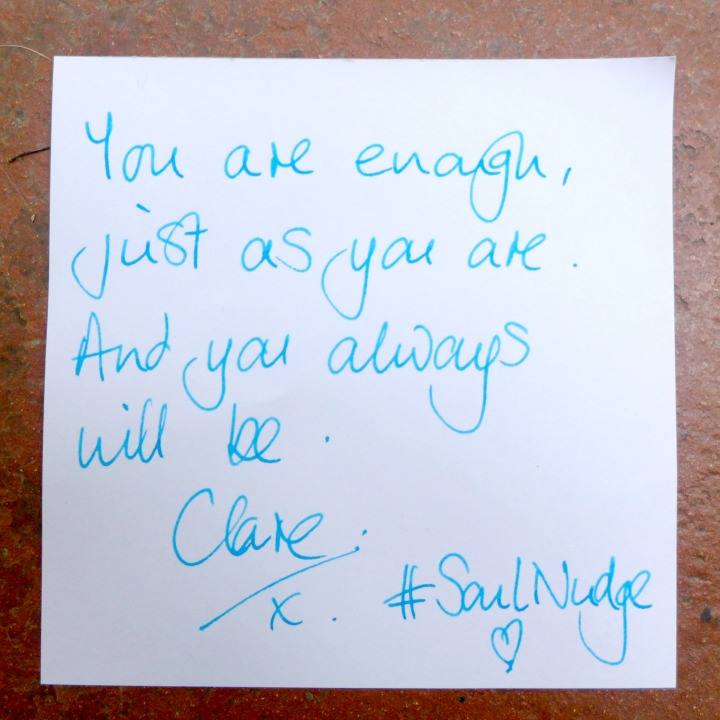 You are enough,
just as you are.
And you always
will be.
Clare.
x.
#SoulNudge
♡